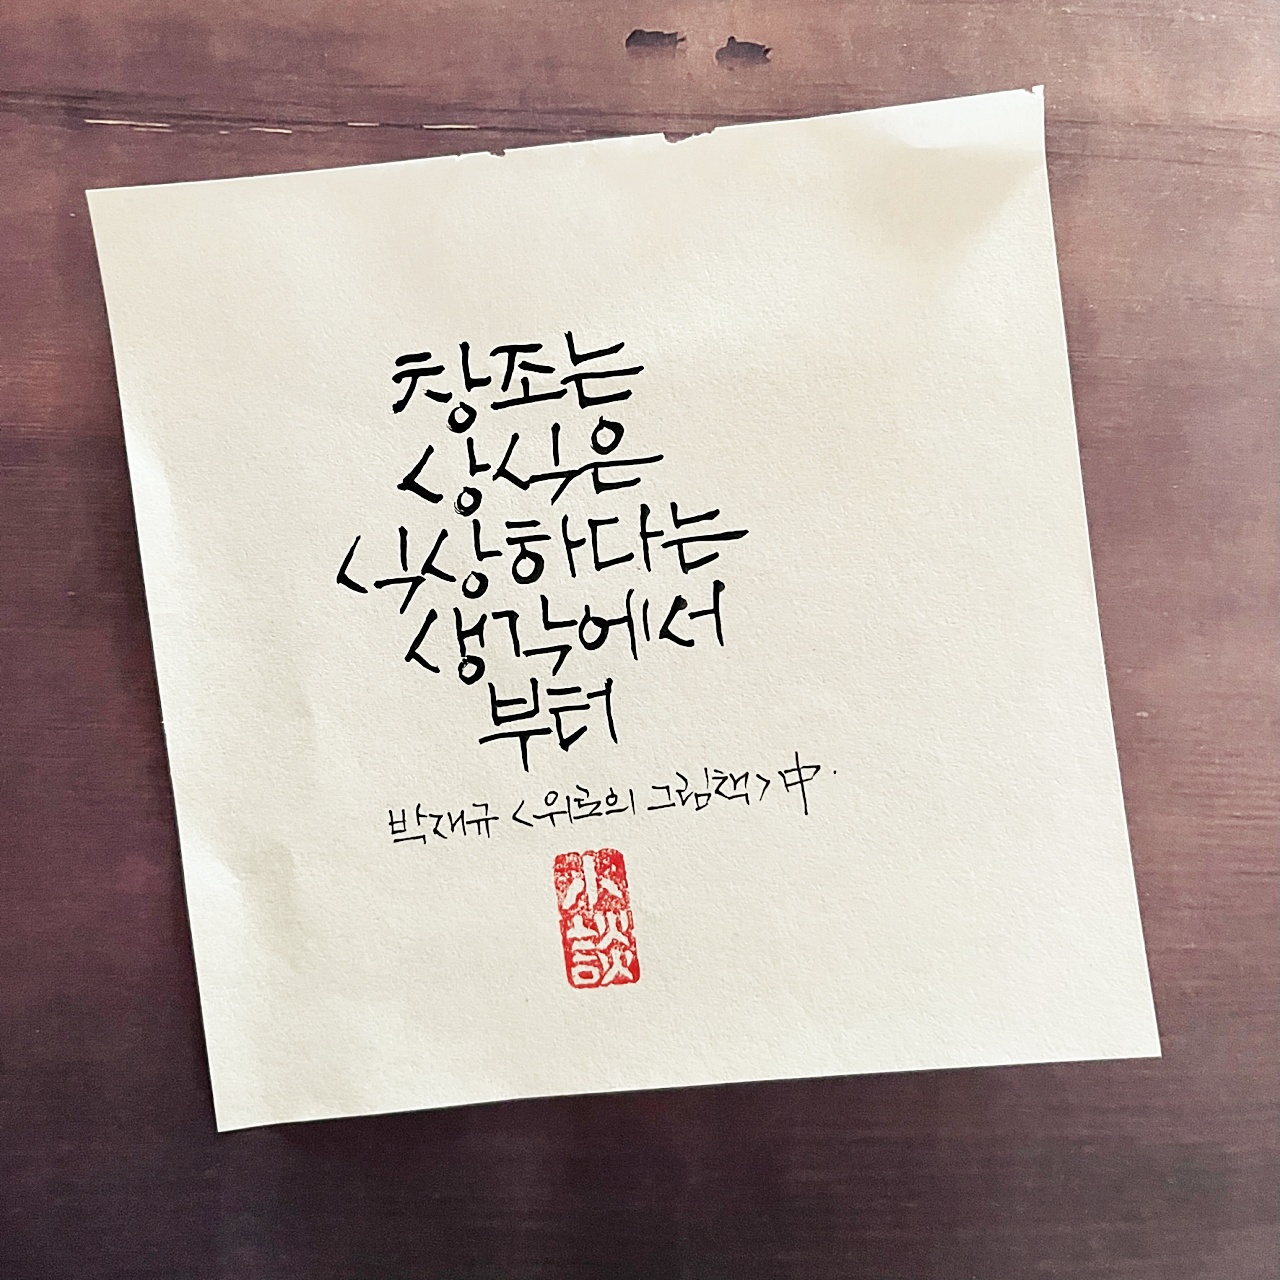 창조는
상식은
식상하다는
생각에서
부터
박재규 <위로의 그림책> 中.
小
談